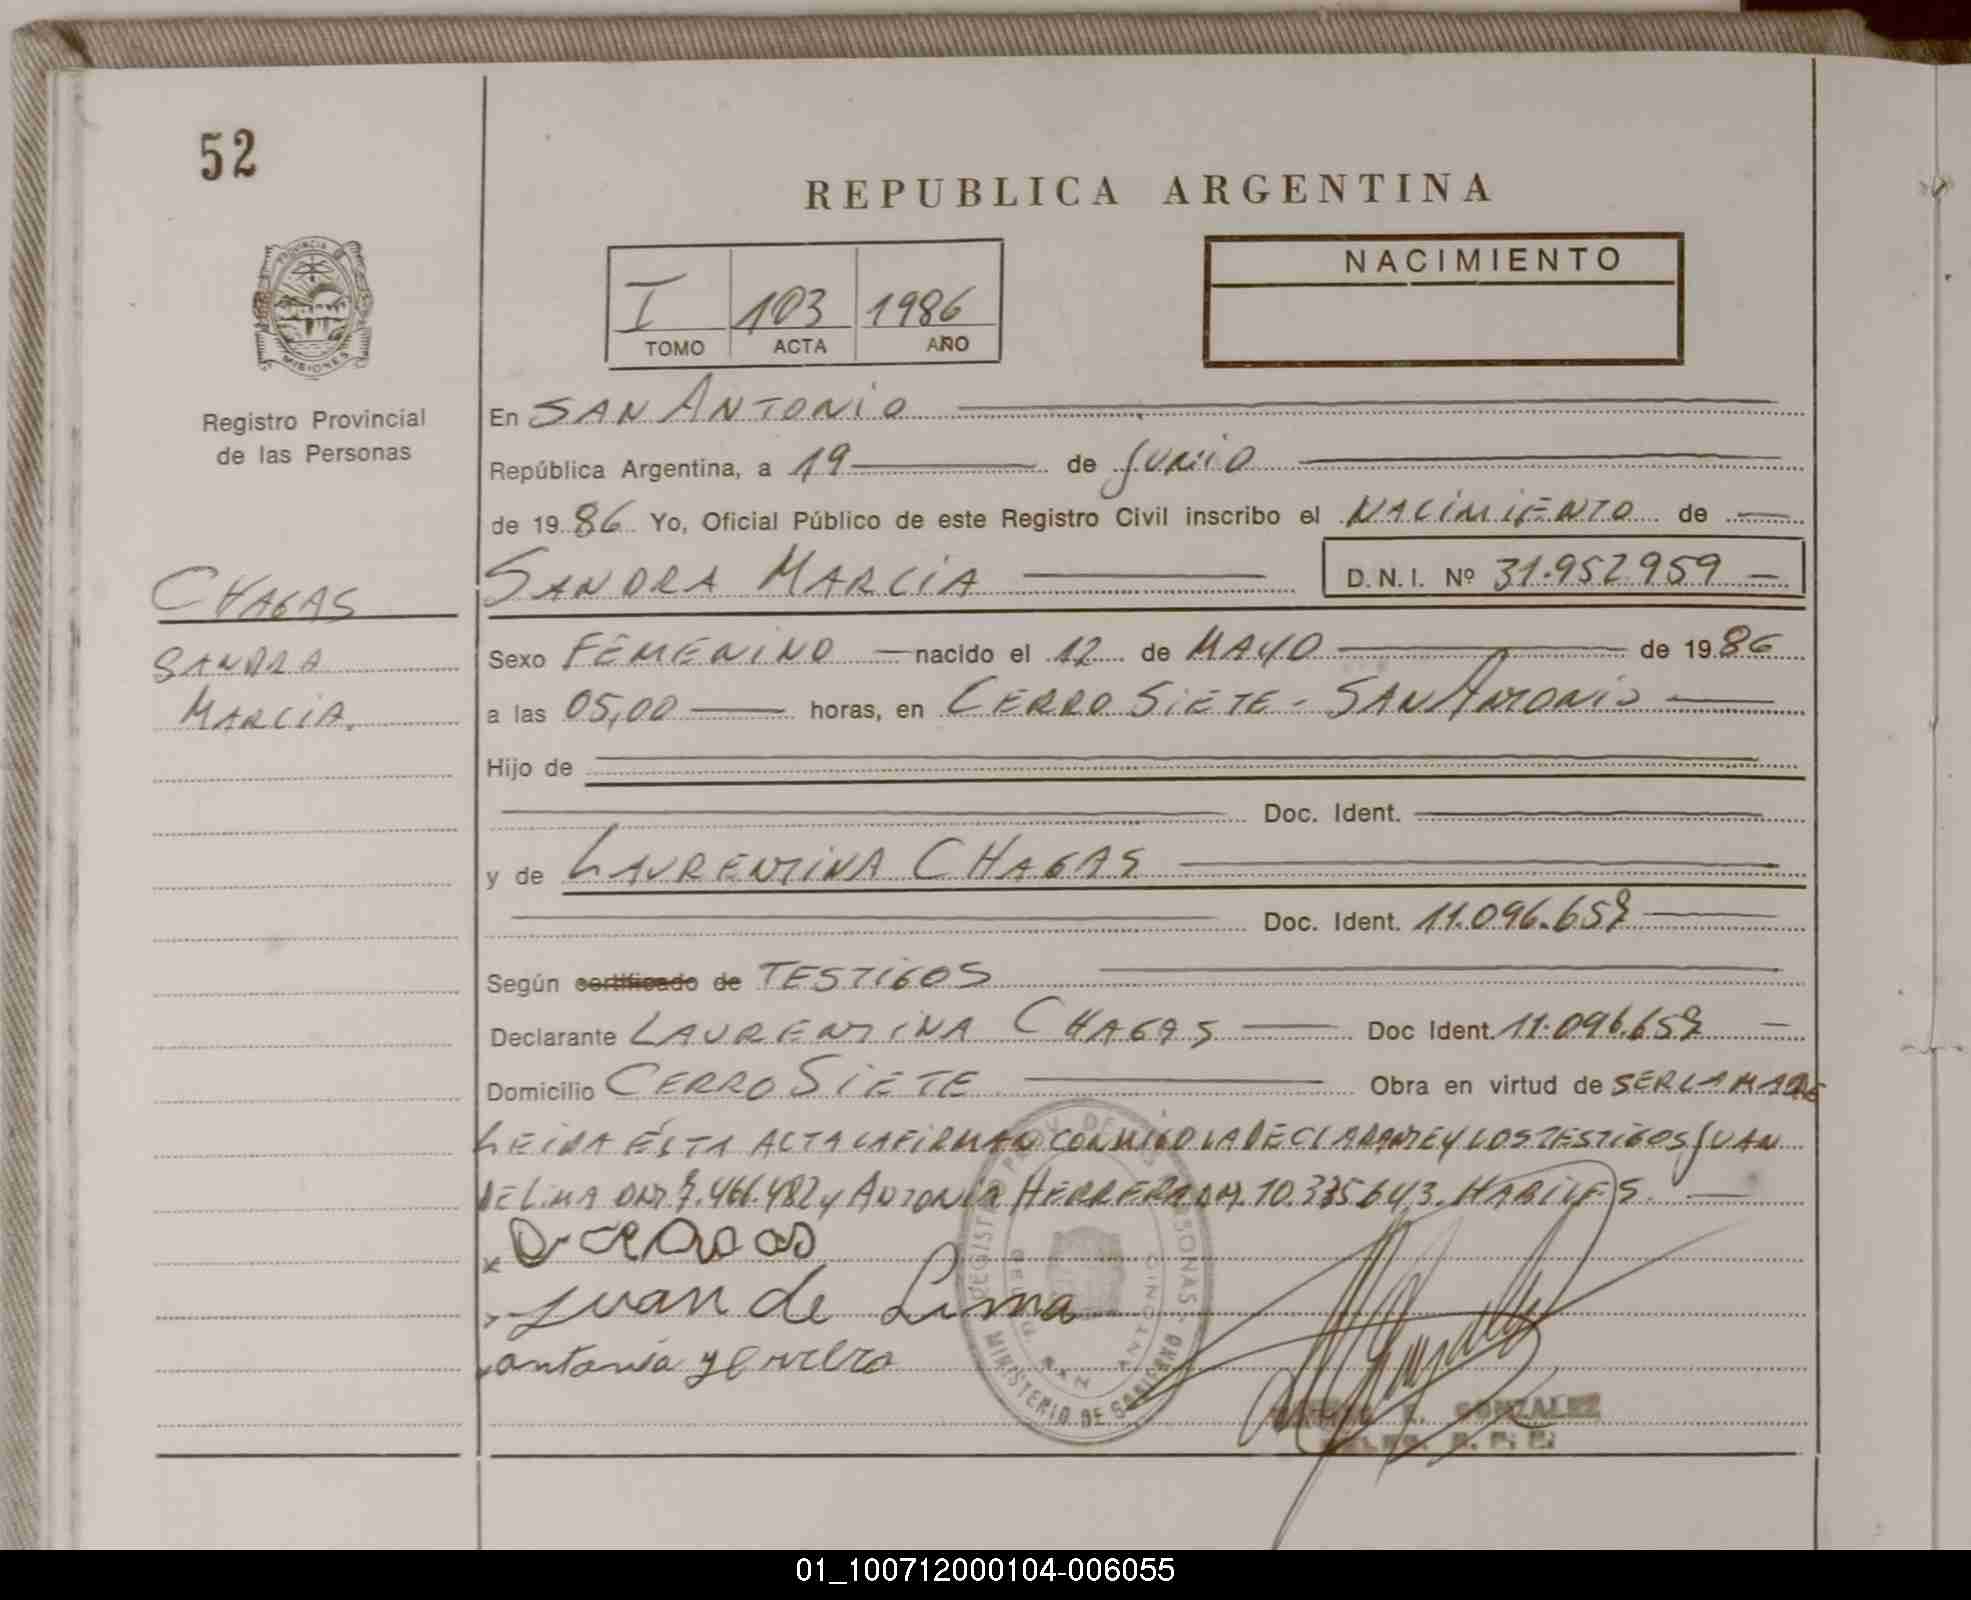 52
REPUBLICA ARGENTINA
PROVINCIA DE
MISIONES
Registro Provincial
de las Personas
I 103 1986
TOMO ACTA AÑO
NACIMIENTO
En SAN ANTONIO
República Argentina, a 19 de JUNIO
de 1986 Yo, Oficial Público de este Registro Civil inscribo el NACIMIENTO de
CHAGAS
SANDRA
MARCIA.
SANDRA MARCIA D.N.I. Nº 31.952.959
Sexo FEMENINO nacido el 12 de MAYO de 1986
a las 05,00 horas, en CERRO SIETE - SAN ANTONIO
Hijo de
Doc. Ident.
y de LAURENTINA CHAGAS
Doc. Ident. 11.096.657
Según certificado de TESTIGOS
Declarante LAURENTINA CHAGAS Doc Ident. 11.096.657
Domicilio CERRO SIETE Obra en virtud de SER LA MADRE
LEIDA ÉSTA ACTA LA FIRMAN CONMIGO LA DECLARANTE Y LOS TESTIGOS JUAN
DE LIMA DNI 7.466.482 y ANTONIA HERRERA DNI. 10.335643. HABILES.
Juan de Lima
antonia
REGISTRO PROV. DE LAS PERSONAS
MINISTERIO DE GOBIERNO
GONZALEZ
01_100712000104-006055